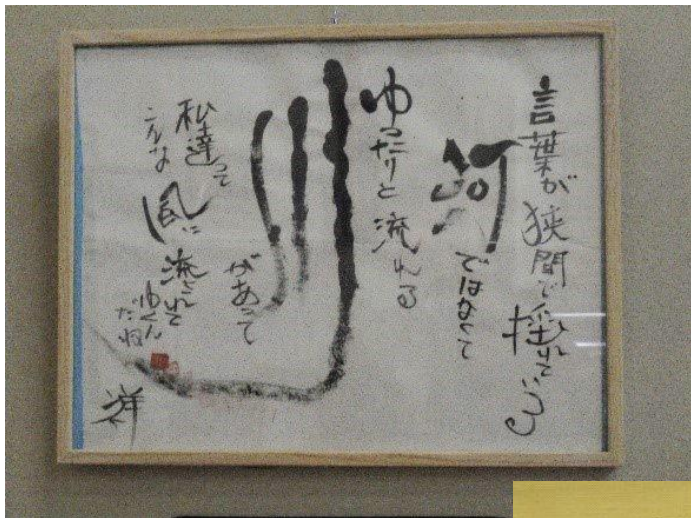 言葉が狭間で
揺れている
河
ではなくて
ゆったりと流れる
川
があって
私達って
こんな
風に
流されて
ゆくん
だね
祥